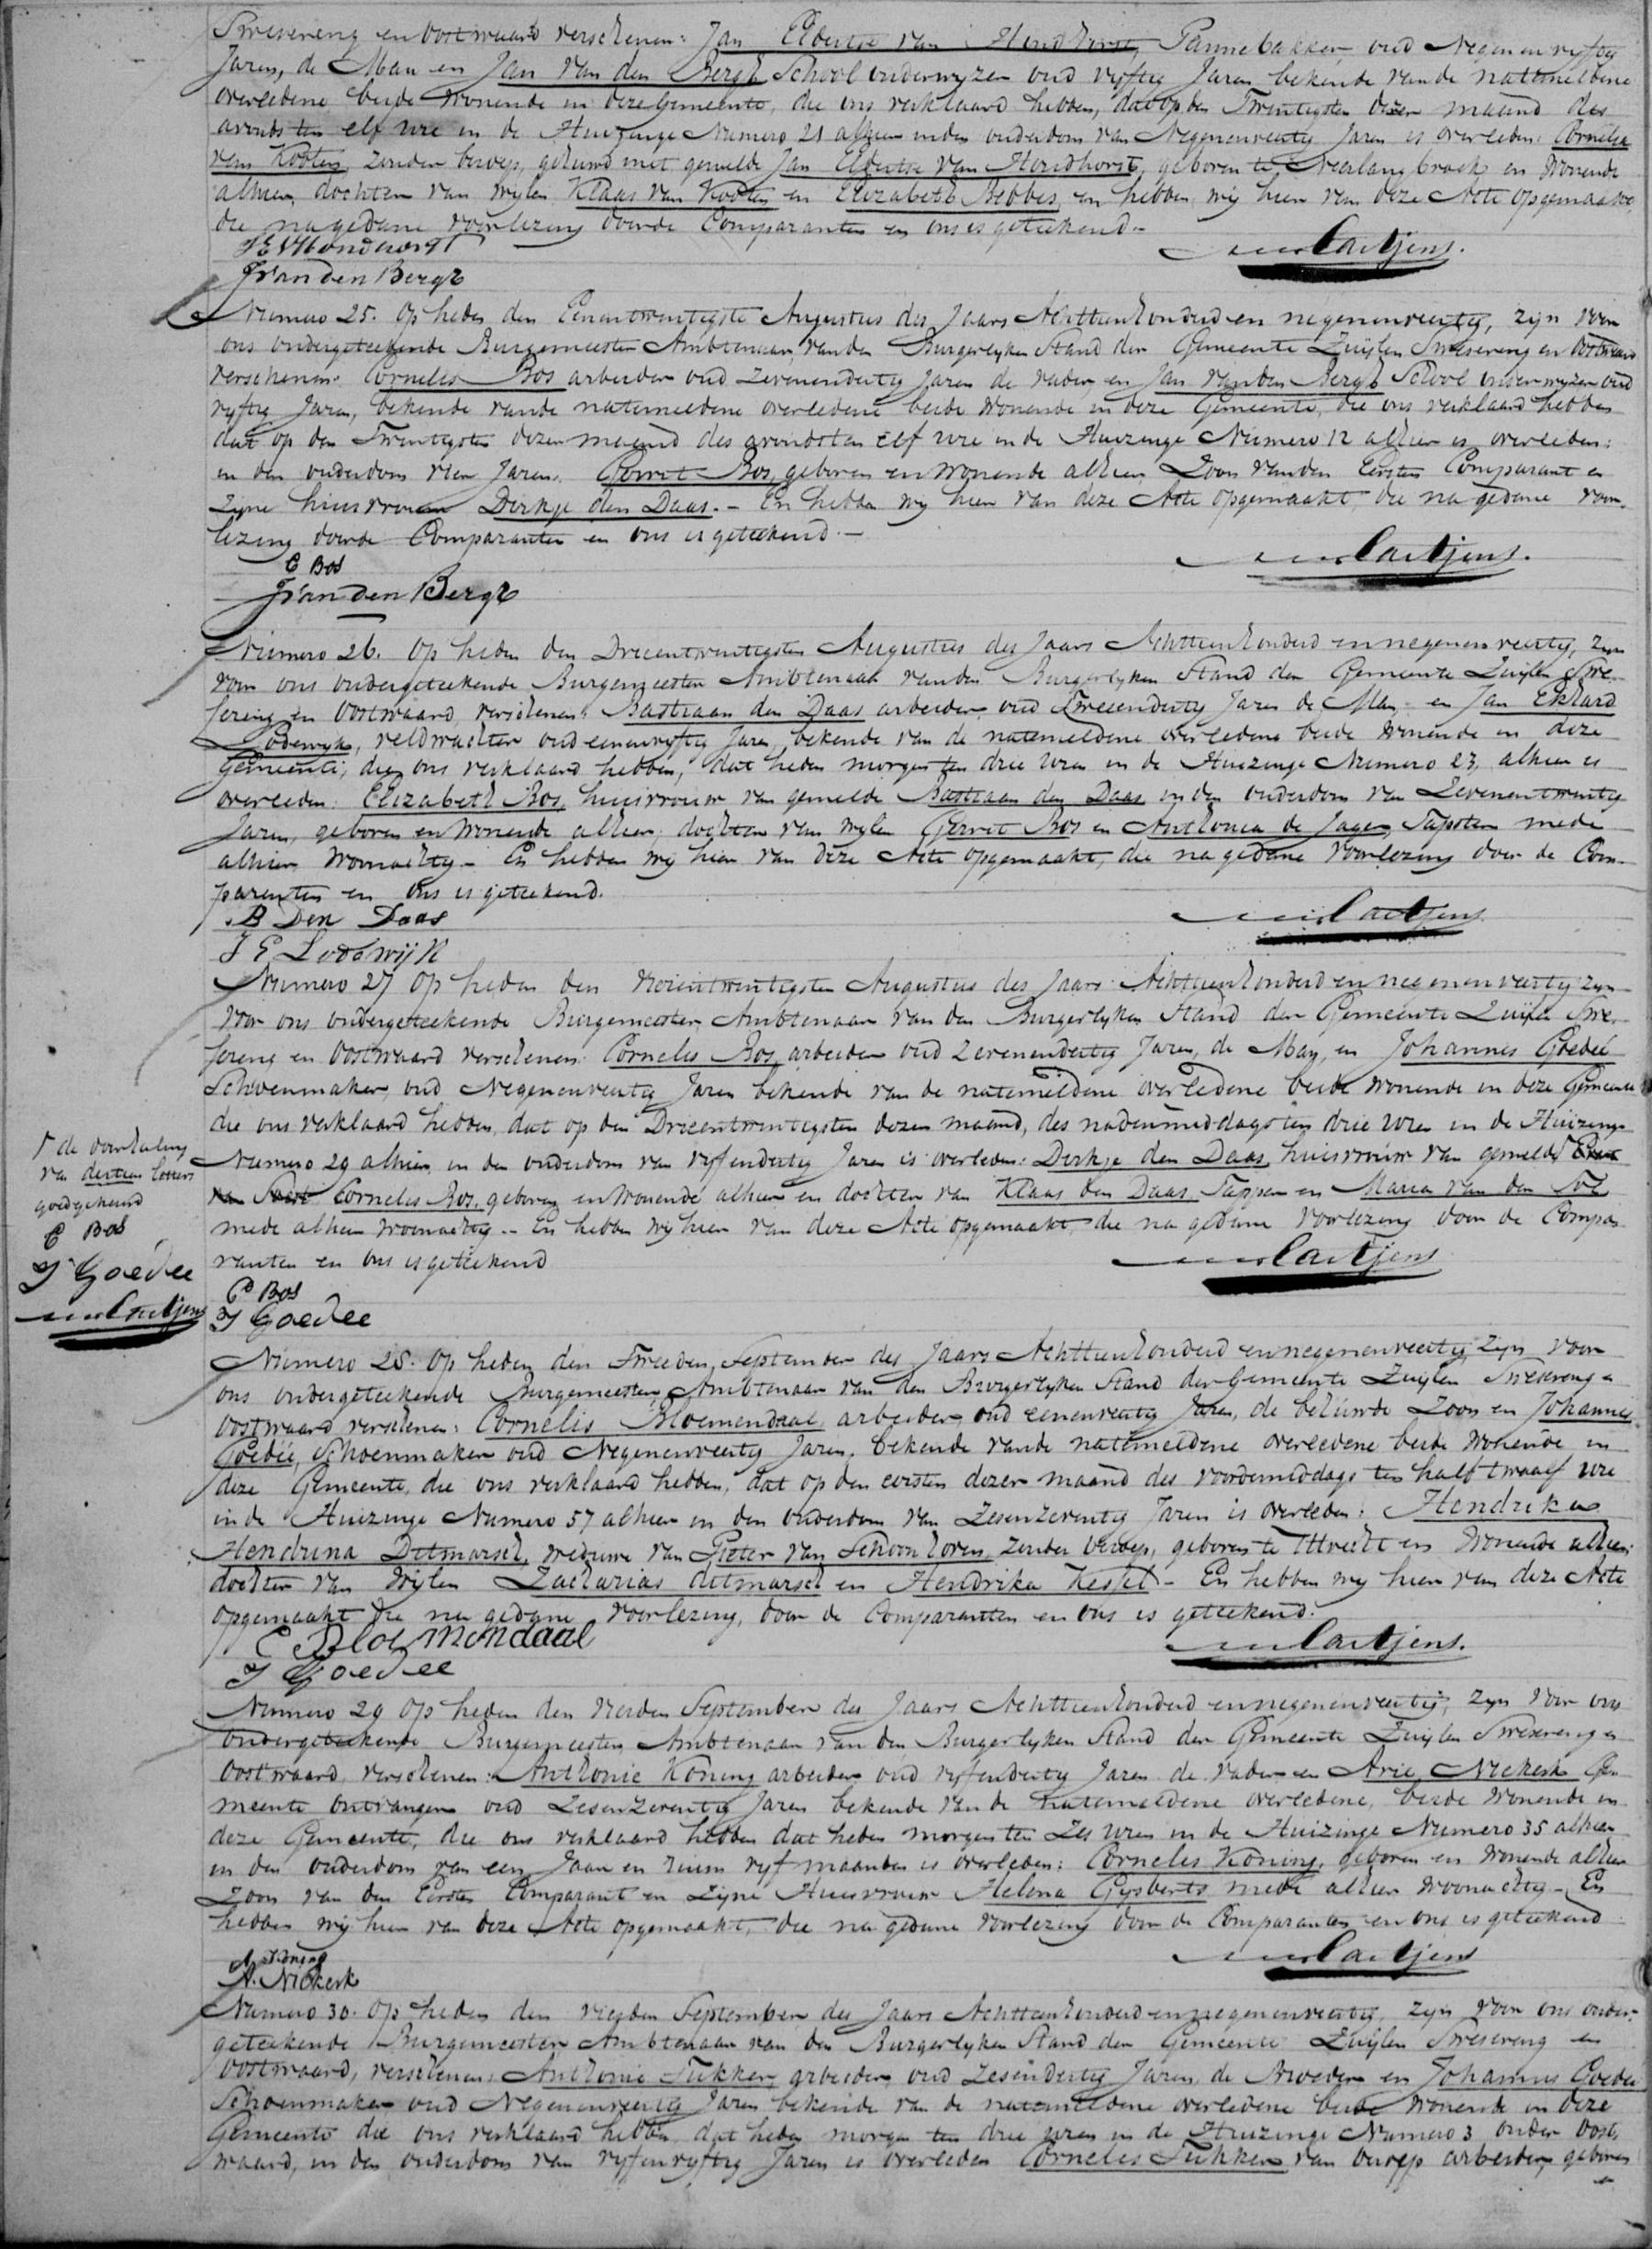 Swesereng en Oostwaard verschenen: Jan Elbertse van Hondhorst, Pannebakker, oud Negenenvyftig
Jaren, de Man en Jan van den Bergh School onderwyzer oud vyftig Jaren bekende van de natemeldene
overledene beide Wonende in deze Gemeente, die ons verklaard hebben, dat op den Twintigsten dezer maand des
avonds ten elf ure in de Huizinge Numero 21 alhier in den ouderdom van Negenenveertig Jaren is overleden: Cornelia
van Kooten, zonder beroep, gehuwd met gemelde Jan Elbertse van Hondhorst, geboren te Neerlangbroek en Wonende
alhier, dochter van wylen Klaas van Kooten en Elizabeth Bebbes, en hebben wij hier van deze Acte opgemaakt
die na gedane voorlezing door de Comparanten en ons is geteekend.-
J E V Hondhorst
J van den Bergh
Numero 25. Op heden den Eenentwintigste Augustus des Jaars Achttienhonderd en negenenveertig, zijn voor
ons ondergeteekende Burgemeester Ambtenaar van den Burgerlyken Stand der Gemeente Zuijlen Swesereng en Oostwaard
verschenen: Cornelis Bos arbeider oud Zevenendertig Jaren de vader, en Jan van den Bergh School onderwyzer oud
vyftig Jaren, bekende van de natemeldene overledene beide Wonende in deze Gemeente, die ons verklaard hebben
dat op den Twintigsten dezer maand des avonds ten Elf ure in de Huizinge Numero 12 alhier is overleden:
in den ouderdom van vier Jaren. Gerrit Bos, geboren en Wonende alhier, Zoon van den Eersten Comparant en
zijne huisvrouw Dirkje den Daas. - En hebben wij hier van deze Acte opgemaakt, die na gedane voor-
lezing door de Comparanten en ons is geteekend. -
C Bos
J van den Bergh
Numero 26. Op heden den Drieentwintigsten Augustus des Jaars Achttienhonderd en negenenveertig, zijn
voor ons ondergeteekende Burgemeester Ambtenaar van den Burgerlyken Stand der Gemeente Zuijlen Swe-
sereng en Oostwaard, verschenen: Bastiaan den Daas arbeider oud Tweeendertig Jaren de Man en Jan Ekhard
Lodewijk, veldwachter oud eenenvyftig Jaren, bekende van de natemeldene overledene beide Wonende in deze
Gemeente, die ons verklaard hebben, dat heden morgen ten drie uren in de Huizinge Numero 23, alhier is
overleden: Elizabeth Bos, huisvrouw van gemelde Bastiaan den Daas in den ouderdom van Zevenentwintig
Jaren, geboren en Wonende alhier, dochter van wylen Gerrit Bos en Anthonia de Jager, Tapster mede
alhier Woonachtig - En hebben wij hier van deze Acte opgemaakt, die na gedane Voorlezing door de Com-
paranten en ons is geteekend.
B Den Daas
J E Lodewijk
Numero 27 Op heden den Vierentwintigsten Augustus des Jaars Achttienhonderd en negenenveertig zijn
voor ons ondergeteekende Burgemeester Ambtenaar van den Burgerlyken Stand der Gemeente Zuijlen Swe-
sereng en Oostwaard verschenen: Cornelis Bos, arbeider oud Zevenendertig Jaren, de Man, en Johannes Goedeé
Schoenmaker, oud Negenenveertig Jaren bekende van de natemeldene overledene beide Wonende in deze Gemeente
die ons verklaard hebben, dat op den Drieentwintigsten dezer maand, des nademiddags ten drie uren in de Huizinge
Numero 29 alhier, in den ouderdom van vyfendertig Jaren is overleden: Dirkje den Daas, huisvrouw van gemelde
Cornelis Bos, geboren en Wonende alhier en dochter van Klaas den Daas, Tapper en Maria van den Tol
mede alhier Woonachtig. - En hebben wij hier van deze Acte opgemaakt, die na gedane Voorlezing door de Compa-
ranten en ons is geteekend
de doorhaling
van dertien letters
goedgekeurd
C Bos
J Goedee
C Bos
J Goedee
Numero 28. Op heden den Tweeden September des Jaars Achttienhonderd en negenenveertig zijn voor
ons ondergeteekende Burgemeester, Ambtenaar van den Burgerlyken Stand der Gemeente Zuijlen Swesereng en
Oostwaard verschenen: Cornelis Bloemendaal, arbeider, oud eenenveertig Jaren, de behuwde Zoon en Johannes
Goedeé, Schoenmaker oud Negenenveertig Jaren, bekende van de natemeldene overledene beide Wonende in
deze Gemeente, die ons verklaard hebben, dat op den eersten dezer maand des voordemiddags ten half twaalf ure
in de Huizinge Numero 57 alhier in den ouderdom van Zesenzeventig Jaren is overleden: Hendrika
Hendrina Ditmarsch, weduwe van Pieter van Schoonhoven, zonder beroep, geboren te Utrecht en Wonende alhier,
dochter van Wylen Zacharias Ditmarsch en Hendrika Kessel - En hebben wij hier van deze Acte
opgemaakt die na gedane Voorlezing, door de Comparanten en ons is geteekend.
C Bloemendaal
J Goedee
Numero 29 Op heden den Vierden September des Jaars Achttienhonderd en negenenveertig, zijn voor ons
ondergeteekende Burgemeester, Ambtenaar van den Burgerlyken Stand der Gemeente Zuijlen Swesereng en
Oostwaard verschenen: Anthonie Koning arbeider oud vyfendertig Jaren de vader en Arie Niekerk Ge-
meente ontvanger oud Zesenzeventig Jaren bekende van de natemeldene overledene, beide Wonende in
deze Gemeente, die ons verklaard hebben dat heden morgen ten Zes uren in de Huizinge Numero 35 alhier
in den ouderdom van een Jaar en ruim vyf maanden is overleden: Cornelis Koning, geboren en Wonende alhier
Zoon van den Eersten Comparant en Zijne Huisvrouw Helena Gysberts mede alhier Woonachtig. En
hebben wij hier van deze Acte opgemaakt, die na gedane voorlezing door de Comparanten en ons is geteekend
A Koning
A. Niekerk
Numero 30. Op heden den vierden September des Jaars Achttienhonderd en negenenveertig, zijn voor ons onder-
geteekende Burgemeester Ambtenaar van den Burgerlyken Stand der Gemeente Zuijlen Swesereng en
Oostwaard, verschenen: Anthonie Tukker, arbeider, oud Zesendertig Jaren, de Broeder en Johannes Goedeé
Schoenmaker oud Negenenveertig Jaren bekende van de natemeldene overledene beide Wonende in deze
Gemeente die ons verklaard hebben, dat heden morgen ten drie uren in de Huizinge Numero 3 onder Oost-
waard, in den ouderdom van vyfenvyftig Jaren is overleden Cornelis Tukker van beroep arbeider, geboren
en